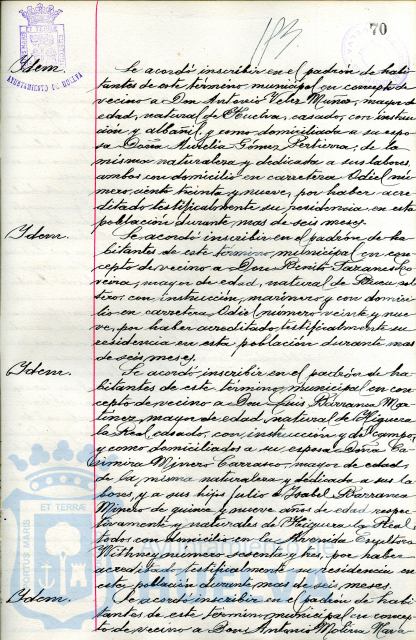 70
183
AYUNTAMIENTO DE HUELVA
Idem.
Se acordó inscribir en el padrón de habi-
tantes de este término municipal en concepto de
vecino a Don Antonio Velez Muñoz, mayor de
edad, natural de Huelva, casado, con instruc-
ción y albañil, y como domiciliada a su espo-
sa Doña Aurelia Gómez Pertierra, de la
misma naturaleza y dedicada a sus labores,
ambos con domicilio en carretera Odiel nú-
mero ciento treinta y nueve, por haber acre-
ditado testificalmente su residencia en esta
población durante mas de seis meses.
Idem.
Se acordó inscribir en el padrón de ha-
bitantes de este término municipal en con-
cepto de vecino a Don Benito
mayor de edad, natural de sol-
tero, con instrucción, marinero y con domici-
lio en carretera Odiel número veinte y nue-
ve, por haber acreditado testificalmente su
residencia en esta población durante mas
de seis meses.
Idem.
Se acordó inscribir en el padrón de ha-
bitantes de este término municipal en con-
cepto de vecino a Don Luis Barranca Mar-
tinez, mayor de edad, natural de Higuera
la Real, casado, con instrucción y del campo,
y como domiciliados a su esposa Doña Ca-
simira Minero Carrasco, mayor de edad,
de la misma naturaleza y dedicada a sus la-
bores, y a sus hijos Julio e Isabel Barranca
Minero de quince y nueve años de edad respec-
tivamente y naturales de Higuera la Real,
todos con domicilio en la Avenida Escultora
Withney número por haber
acreditado testificalmente su residencia en
esta población durante mas de seis meses.
Idem.
Se acordó inscribir en el padrón de habi-
tantes de este término municipal en concep-
to de vecino a Don Antonio Molina Mar-
PORTUS MARIS
ET TERRAE
Ayuntamiento de
HUELVA